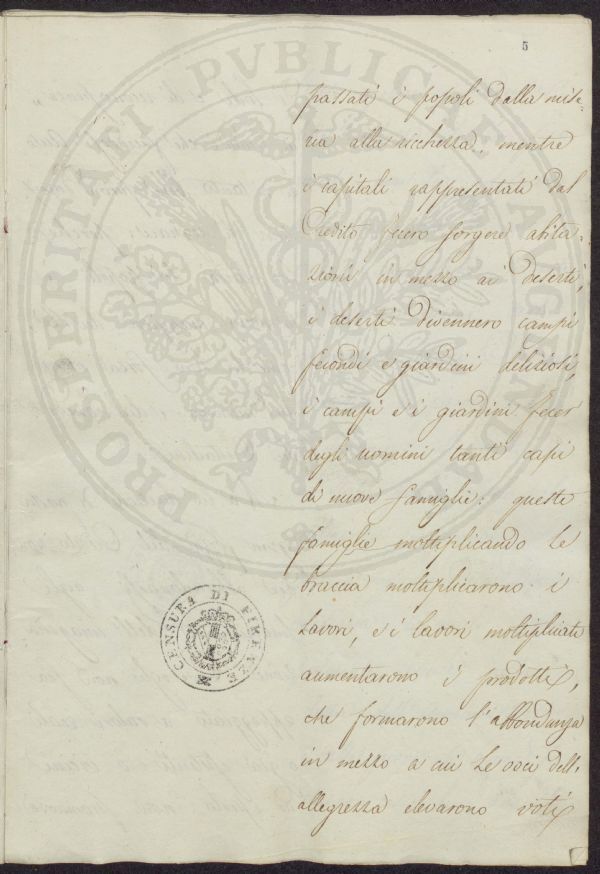 5
passati i popoli dalla mise-
ria alla ricchezza, mentre
i capitali rappresentati dal
Credito fecero sorgere abita-
zioni in mezzo ai deserti,
i deserti divennero campi
fecondi e giardini deliziosi,
i campi e i giardini fecer
degli uomini tanti capi
di nuove famiglie: queste
famiglie moltiplicando le
braccia moltiplicarono i
lavori, e i lavori moltiplicati
aumentarono i prodotti,
che formarono l'abbondanza
in mezzo a cui le voci dell'
allegrezza elevarono voti
CENSURA DI FIRENZE
PROSPERITATI PVBLICAE AVGENDAE